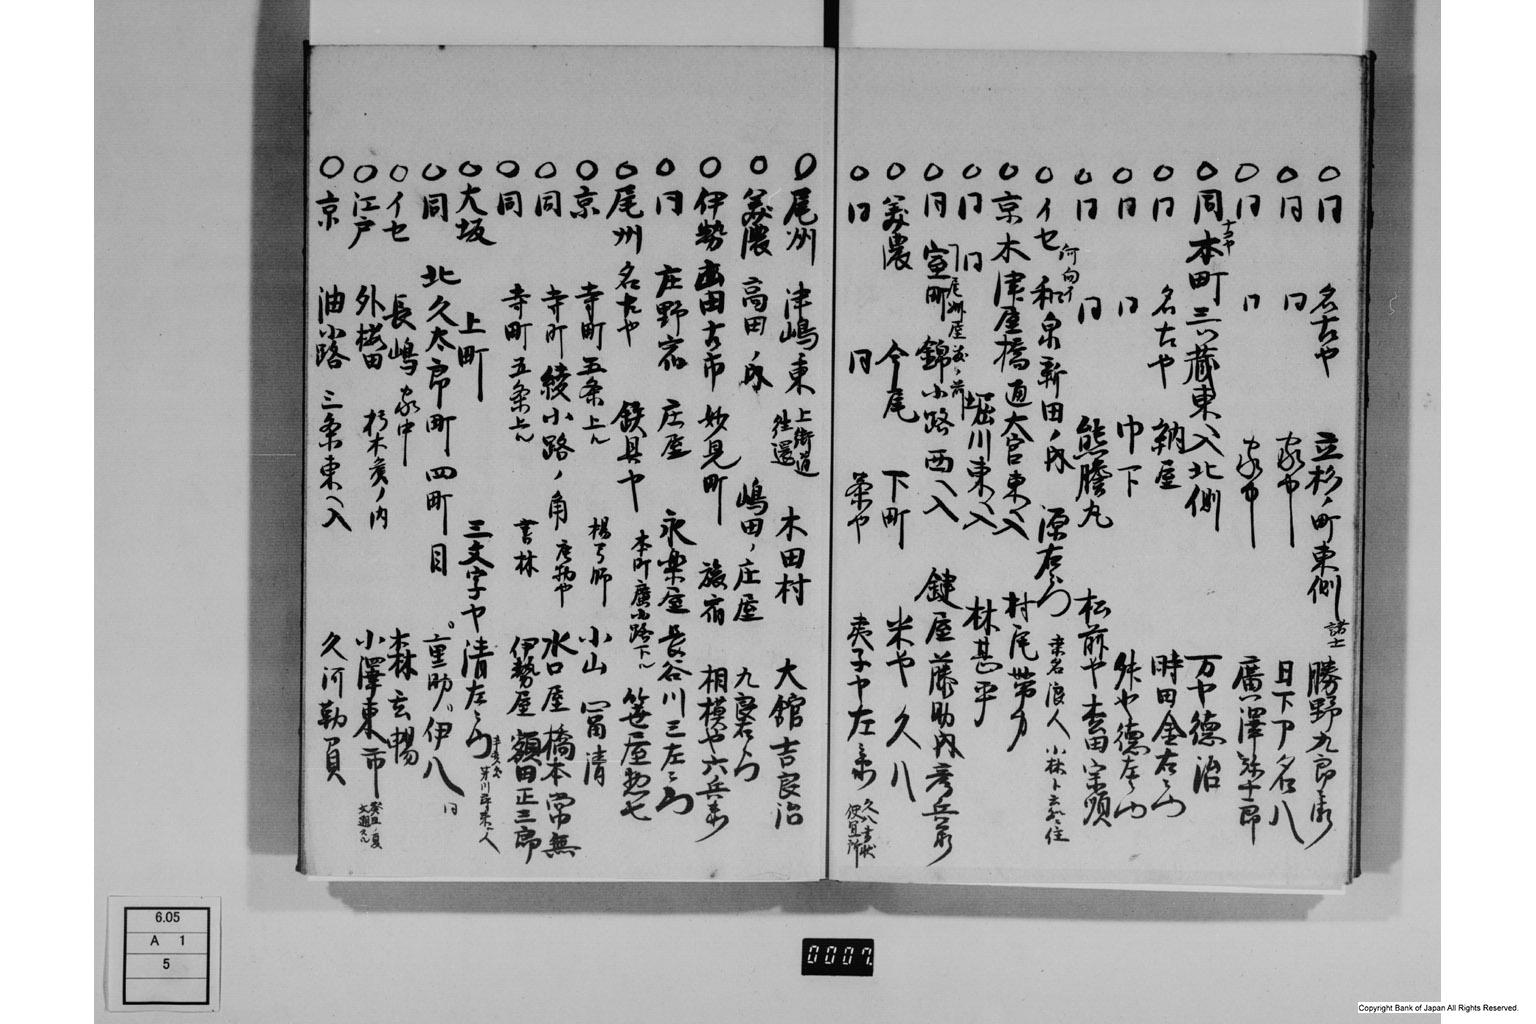 〇同 名古や 立杉ノ町東側 諾士 勝野九郎
〇同 同 家中 日下部名八
〇同 同 家中 廣澤弥十郎
〇同 ナコヤ 本町三ツ蔵東ヘ入北側 万や徳治
〇同 名古や 納屋 時田金左衛門
〇同 同 巾下 舛や徳左衛門
〇同 同 熊膽丸 松前や 宗順
〇イセ 河向イ 和泉新田ノ内 源右衛門 桑名浪人 小林ト云者住
〇京 木津屋橋通大宮東ヘ入 村尾帯刀
〇同 同 堀川東ヘ入 林甚平
〇同 室町 錦小路西ヘ入 鍵屋藤助内彦兵衛
〇美濃 今尾 下町 米や久八
〇同 同 恵子や左
〇尾州 津嶋東 上街道 往還 木田村 大館吉良治
〇美濃 高田ノ内 嶋田ノ庄屋 九郎右衛門
〇伊勢 山田古市 妙見町 旅宿 相模や六兵衛
〇同 庄野宿 庄屋 永楽屋長谷川三左衛門
〇尾州 名古や 鉄具や 本町廣小路下ル 笹屋惣七
〇京 寺町五条上ル 楊弓師 小山 清
〇同 寺町綾小路ノ角 水口屋 橋本常無
〇同 寺町五条上ル 書林 伊勢屋 額田正三郎
〇大坂 上町 三文字や 清左衛門
〇同 北久太郎町四町目 重助 伊八 同
〇イセ 長嶋 家中 森玄暢
〇江戸 外桜田 朽木 ノ内 小澤東市 文通スル
〇京 油小路 三条東ヘ入 久河勒員
6.05
A 1
5
0007.
Copyright Bank of Japan All Rights Reserved.